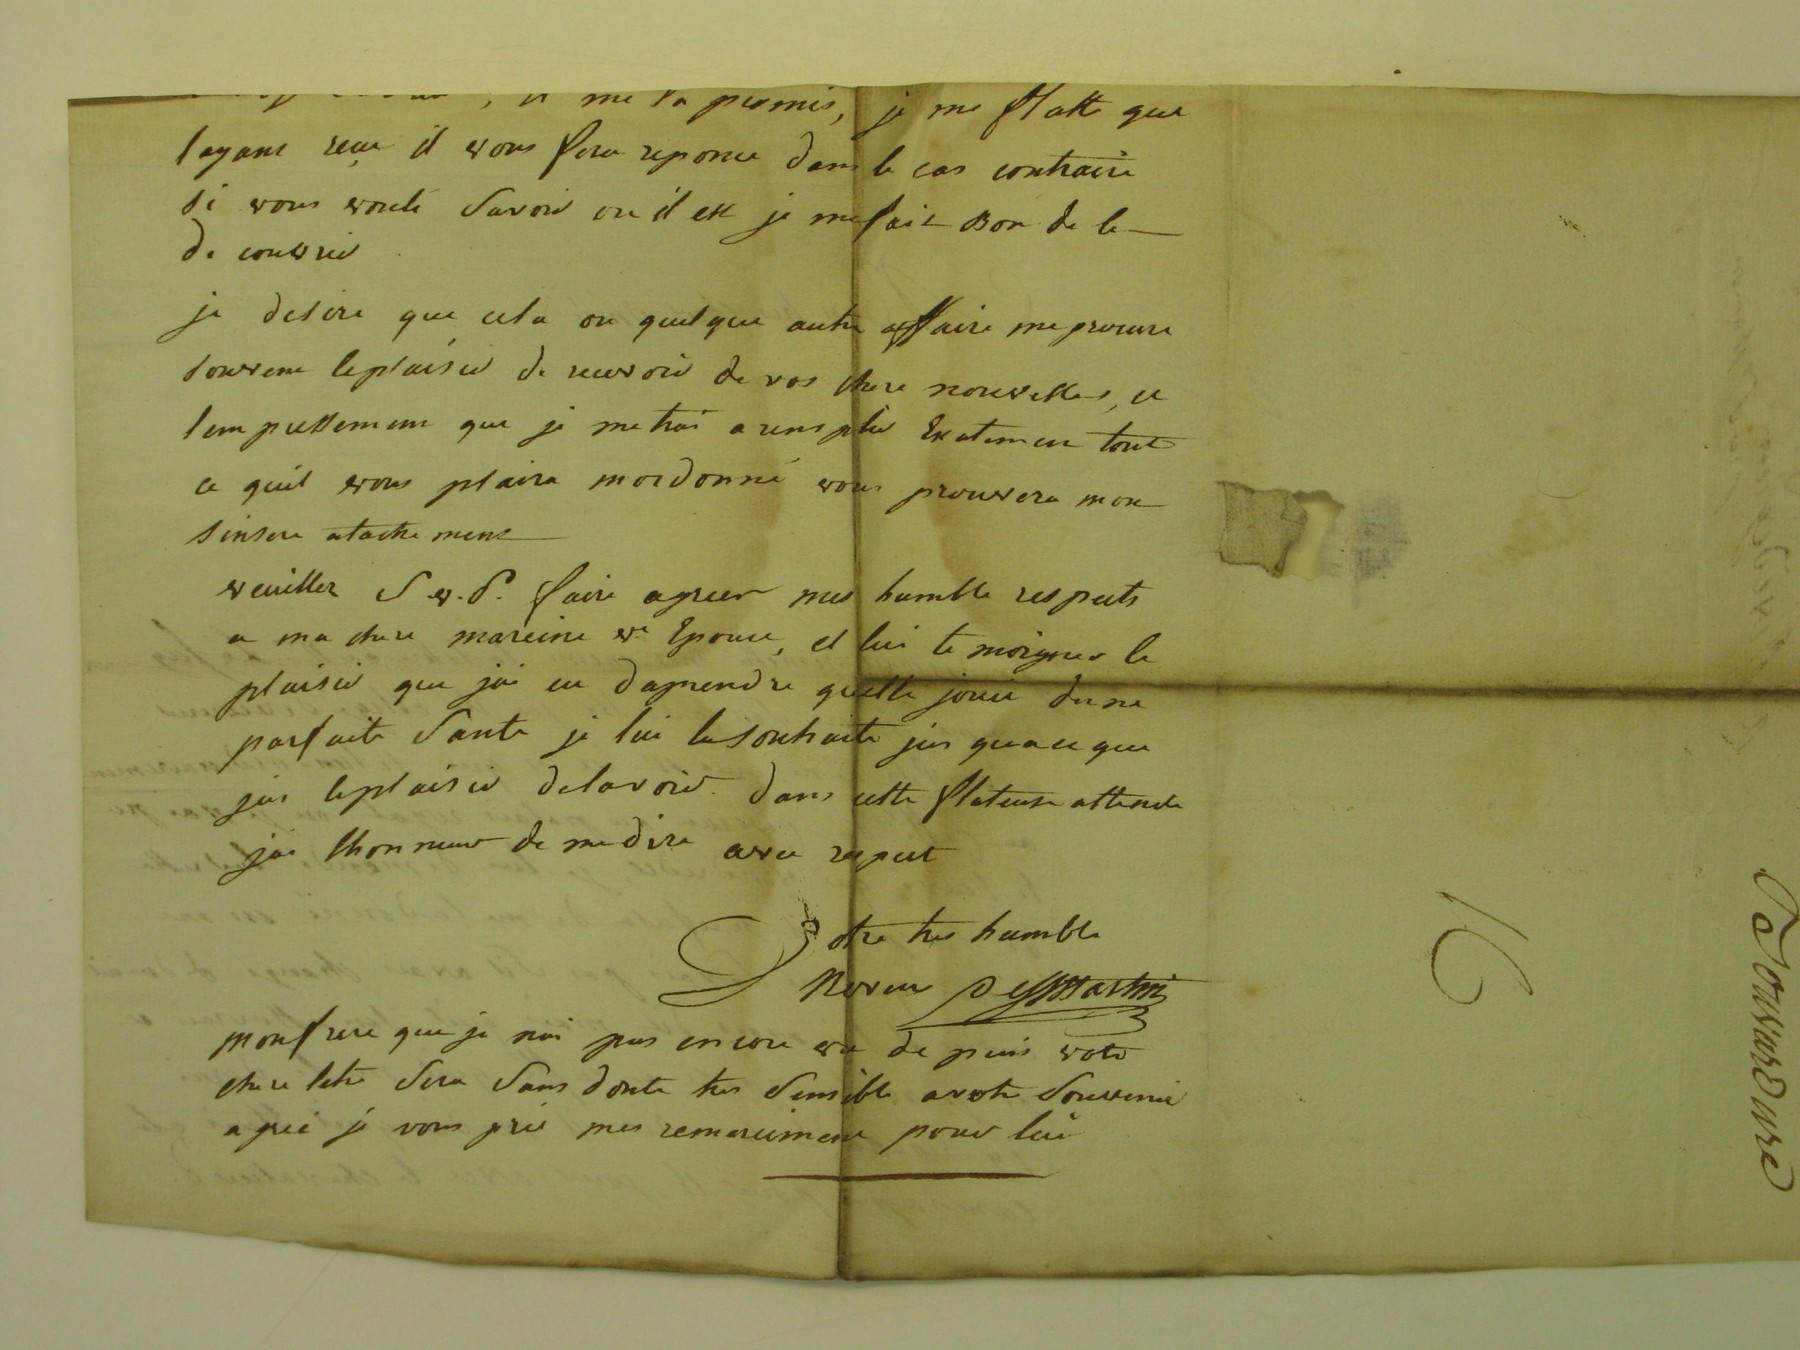 , il me la promis, je me flatte que
layant reçue il vous fera reponce dans le cas contraire
si vous voulé savoir ou il est je me fait Bon de le
de couvrir
je desire que cela ou quelque autre affaire me procure
souvent le plaisir de recevoir de vos chere nouvelles, et
lempressement que je metrai a remplir Exatement tout
ce quil vous plaira mordonné vous prouvera mon
sinsere atachement
veuillez S.v.P. faire agreer mes humble respects
a ma chere mareine vre Epouse, et lui temoigner le
plaisir que jai eu daprendre quelle jouie dune
parfaite Santé je lui la souhaite jus qua ce que
jai le plaisir de la voir. dans cette flateuse attende
jai lhonneur de me dire avec respect
Votre tres humble
Neveu DesMartin
mon frere que je nai pas encore vu de puis votre
chere letre sera sans doute tres sensible a votre souvenir
agreé je vous prie mes remerciment pour lui
16